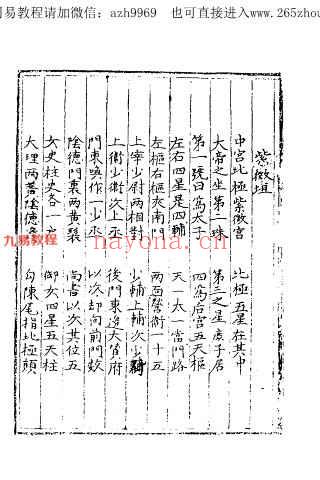 易教程请加微信：azh9969　也可直接进入www.265zhou
紫微垣
中宮北極紫微宮　北極五星在其中
大帝之坐第二珠　第三之星庶子居
第一號曰爲太子　四爲后宮五天樞
左右四星是四輔　天一太一當門路
左樞右樞夾南門　兩面營衛一十五
上宰少尉兩相對　少輔上輔次少
上衛少衛次上丞　後門東邊大贊府
門東喚作一少丞　以次却向前門數
陰德門裏兩黃聚　尚書以次其位五
女史柱史各一　御女四星五天柱
大理兩陰德　勾陳尾指北極顛
九易教程
nayona.cn